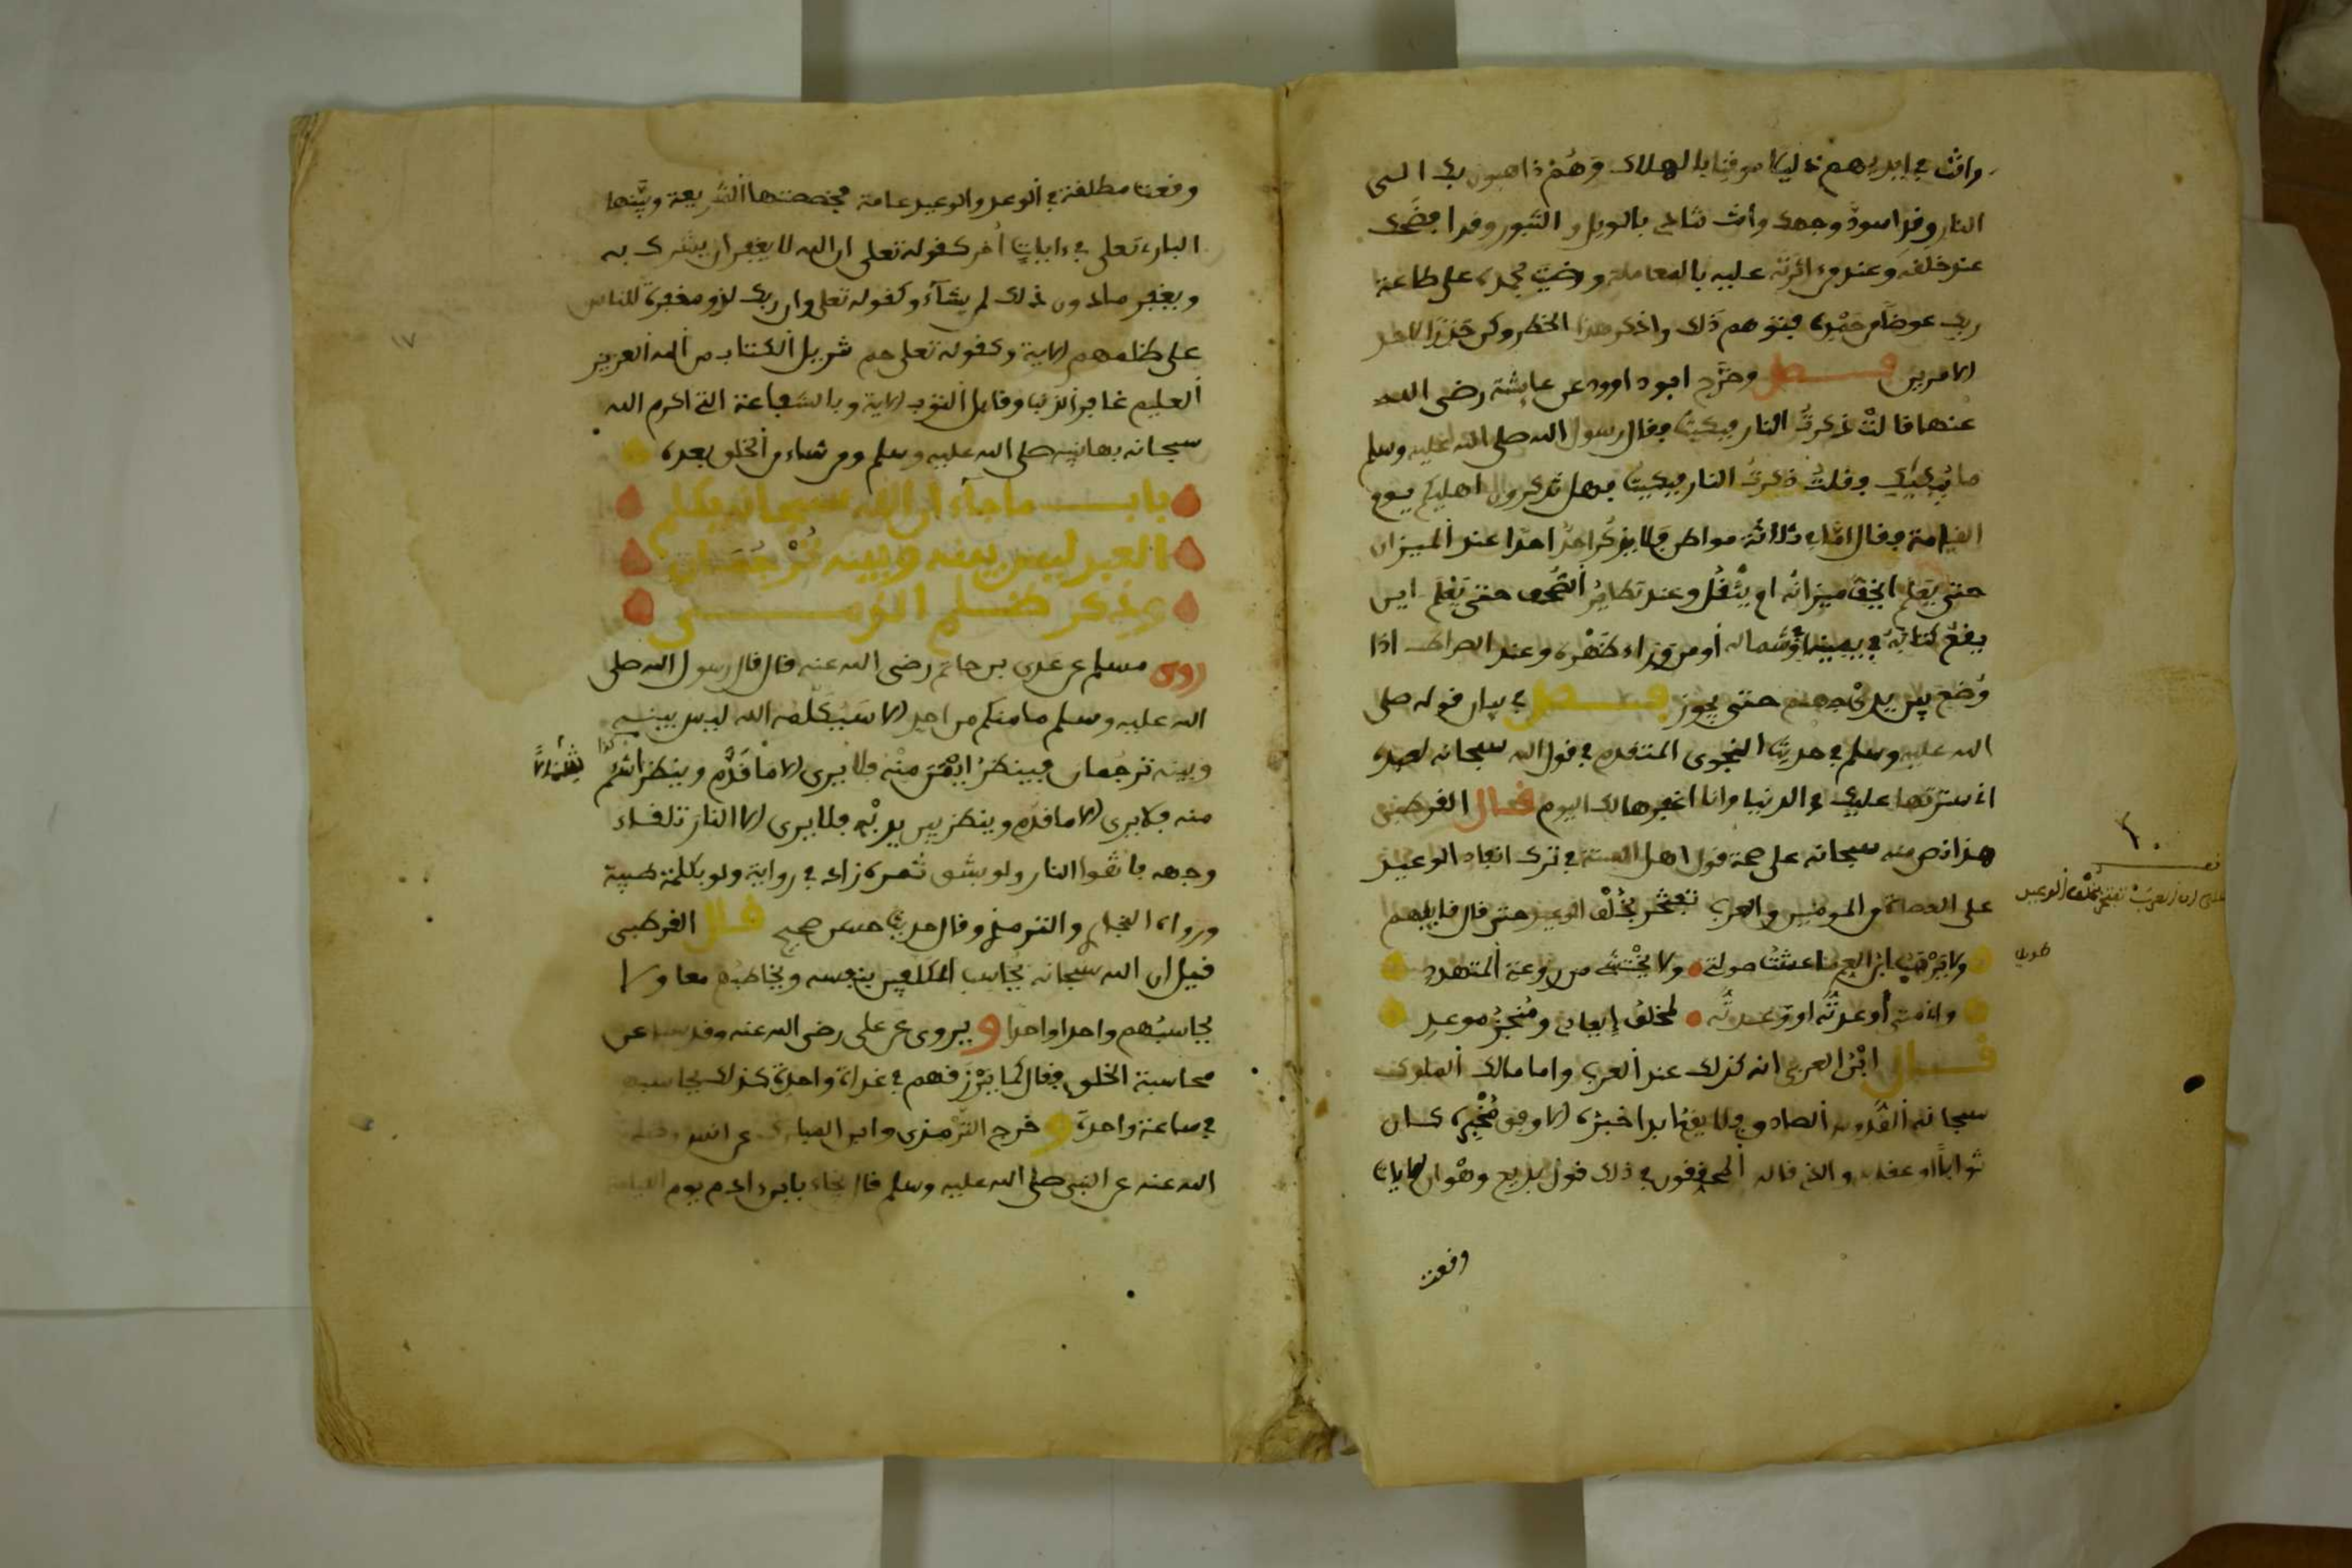 وانت في ايديهم ذليلا موقنا بالهلاك وهم ذاهبون بك الى
النار وقد اسود وجهك وانت تنادي بالويل والثبور وقد افتضحت
عند خلقه وعند من اثرته عليه بالمعاملة ورضيت بحمده على طاعة
ربك عوضا من حمده فتوهم ذلك واذكر هذا الخطر وكن حذرا لاحد
الامرين فصل وخرج ابو داوود عن عايشة رضي الله
عنها قالت ذكرت النار فبكيت فقال رسول الله صلى الله عليه وسلم
ما يبكيك فقلت ذكرت النار فبكيت فهل تذكرون اهليكم يوم
القيامة فقال اما في ثلاثة مواطن فلا يذكر احد احدا عند الميزان
حتى يعلم ايخف ميزانه ام يثقل وعند تطاير الصحف حتى يعلم اين
يقع كتابه في يمينه او في شماله او من وراء ظهره وعند الصراط اذا
وضع بين يدي جهنم حتى يجوز فصل في بيان قوله صلى
الله عليه وسلم في حديث النجوى المتقدم في قول الله سبحانه لعبده
اني سترتها عليك في الدنيا وانا اغفرها لك اليوم قال القرطبي
هذا نص منه سبحانه على صحة قول اهل السنة في ترك انفاد الوعيد
على العصاة من المومنين والعرب تفتخر بخلف الوعيد حتى قال قايلهم
ولا يرهب ابن العم ما عشت صولتي ولا يختشي من روعة المتهدد
واني متى أوعدته او وعدته لمخلف إيعادي ومنجز موعدي
قال ابن العربي انه كذلك عند العرب واما مالك الملوك
سبحانه القدوس الصادق فلا يقع ابدا خبره الا وفق مخبره كان
ثوابا او عقابا والذي قاله المحققون في ذلك قول بديع وهو ان الايات
وقعت
على ان العرب تفتخر بخلف الوعيد
وقعت مطلقة في الوعد والوعيد عامة فخصصتها الشريعة وبينها
الباري تعلى في ءايات أخر كقوله تعلى ان الله لا يغفر ان يشرك به
ويغفر ما دون ذلك لمن يشاء وكقوله تعلى وان ربك لذو مغفرة للناس
على ظلمهم الاية وكقوله تعلى حم تنزيل الكتاب من الله العزيز
العليم غافر الذنب وقابل التوب الاية وبالشفاعة التي اكرم الله
سبحانه بها نبيه صلى الله عليه وسلم ومن شاء من الخلق بعده
باب ما جاء ان الله سبحانه يكلم
العبد ليس بينه وبينه ترجمان
وذكر
روى مسلم عن عدي بن حاتم رضي الله عنه قال قال رسول الله صلى
الله عليه وسلم ما منكم من احد الا سيكلمه الله ليس بينه
وبينه ترجمان فينظر ايمن منه فلا يرى الا ما قدم وينظر اشأم
منه فلا يرى الا ما قدم وينظر بين يديه فلا يرى الا النار تلقاء
وجهه فاتقوا النار ولو بشق تمرة زاد في رواية ولو بكلمة طيبة
ورواه البخاري والترمذي وقال حديث حسن صحيح قال القرطبي
قيل ان الله سبحانه يحاسب المكلفين بنفسه ويخاطبهم معا ولا
يحاسبهم واحدا واحدا ويروى عن علي رضي الله عنه وقد سيل عن
محاسبة الخلق فقال كما يرزقهم في غداة واحدة كذلك يحاسبهم
في ساعة واحدة وخرج الترمذي وابن المبارك عن انس رضي
الله عنه عن النبي صلى الله عليه وسلم قال يجاء بابن ءادم يوم القيامة
١٧